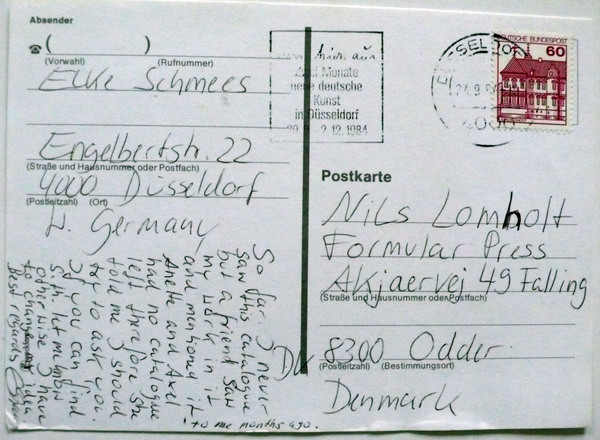 Absender
☎ ( )
(Vorwahl) (Rufnummer)
Elke Schmees
Engelbertstr. 22
(Straße und Hausnummer oder Postfach)
4000 Düsseldorf
(Postleitzahl) (Ort)
W. Germany
So far I never
saw this catalogue
but a friend saw
my work in it
and mentioned it
to me months ago.
Anette and Axel
had no catalogue
left therefore she
told me I should
try to ask you.
If you can find
s.th. let me know
otherwise I have
to change my idea
Best regards
von hier aus
Zwei Monate
neue deutsche
Kunst
in Düsseldorf
2.12.1984
DEUTSCHE BUNDESPOST
60
4000
Postkarte
Nils Lomholt
Formular Press
Akjaervej 49 Falling
(Straße und Hausnummer oder Postfach)
DK 8300 Odder
(Postleitzahl) (Bestimmungsort)
Denmark